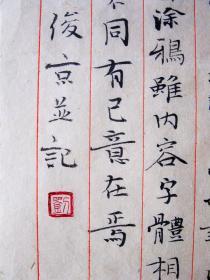 塗鴉雖內容字體相
不同有己意在焉
俊京並記